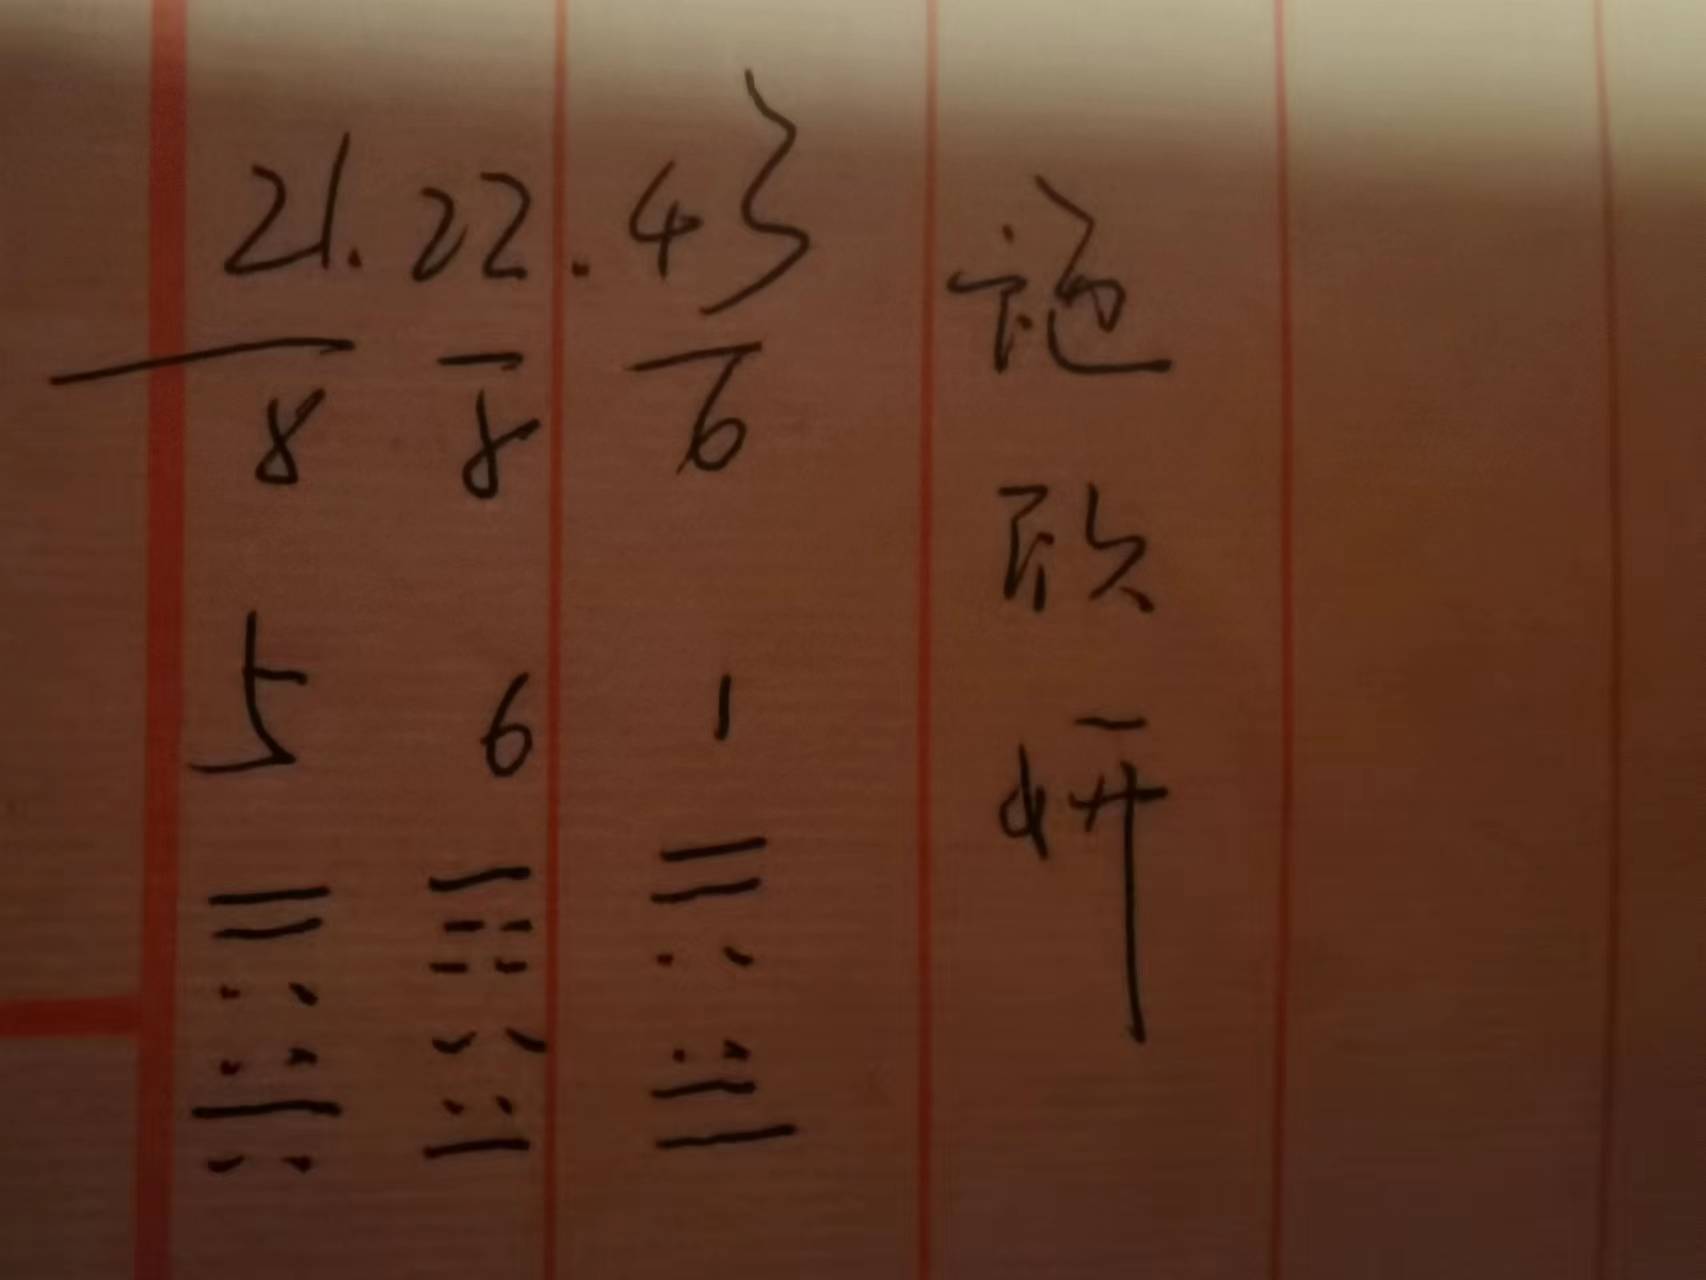 21. 22. 43
8 8 6
5 6 1
施
欣
妍